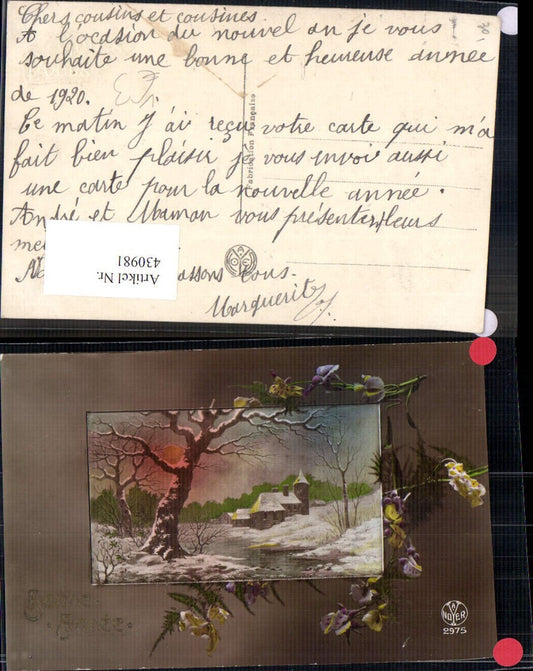 Chers cousins et cousines
A l'ocasion du nouvel an je vous
souhaite une bonne et heureuse année
de 1920.
Ce matin J'ai reçu votre carte qui m'a
fait bien plaisir je vous invoi aussi
une carte pour la nouvelle année.
André et Maman vous présenter leurs
me
assons tous.
Marguerite
Fabrication Française
Artikel Nr.
430981
Bonne
Fête
NOYER
2975